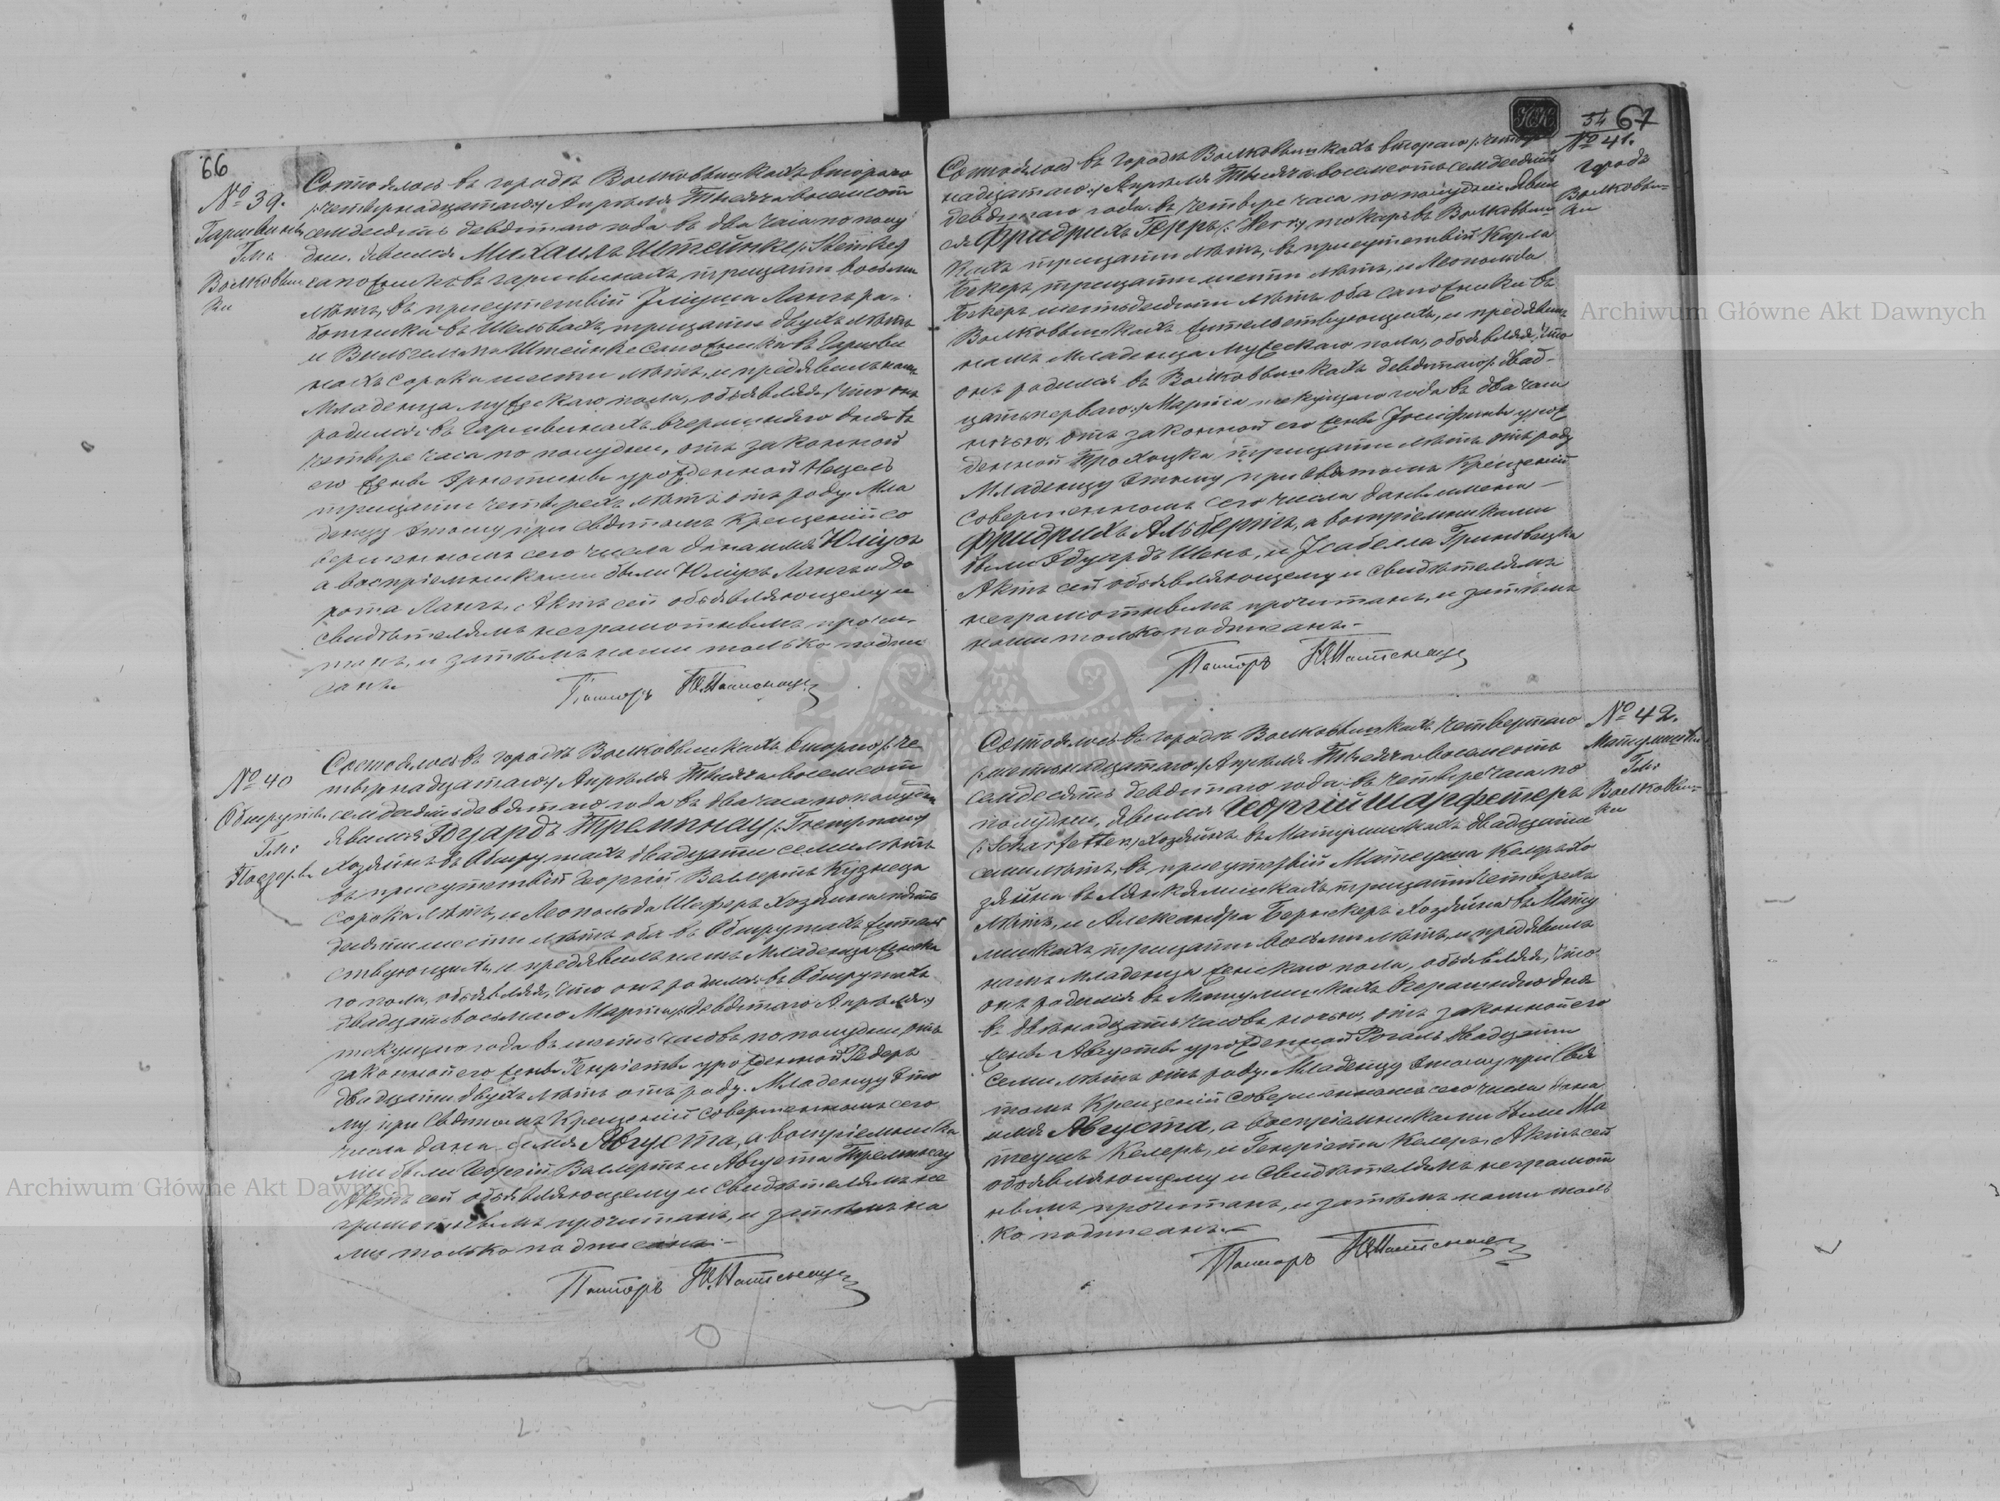 66
№ 39.
Гли:
Состоялось въ городѣ Волковышкахъ втораго
/:четырнадцатаго:/ Апрѣля Тысяча восемсот
семдесятъ девятаго года въ два часа по полу
дни. явился Михаилъ Штейнке
сапожникъ въ тридцати восьми
лѣтъ, въ присутствіи Юліуса Лангъ ра-
ботника въ тридцати двухъ лѣтъ
и Вильгельма Штейнке сапожника въ
сорока шести лѣтъ, и предъявилъ намъ
Младенца мужескаго пола, объявляя, что онъ
родился въ вчерашняго дня въ
четыре часа по полудни, отъ законной
его жены Эрнестины урожденной
тридцати четырехъ лѣтъ отъ роду. Мла
денцу этому при святомъ Крещеніи со
вершенномъ сего числа дано имя Юліусъ
а воспріемниками были Юліусъ Лангъ и До
рота Лангъ. Актъ сей объявляющему и
свидѣтелямъ неграмотнымъ прочи-
танъ, и затѣмъ нами только подпи
санъ
Пасторъ
№ 40
Гли:
Состоялось въ городѣ Волковышкахъ втораго /:че
тырнадцатаго:/ Апрѣля Тысяча восемсот
семдесятъ девятаго года въ два часа по полудни
явился Эдуардъ Тремпнау
Хозяинъ въ Обшрутахъ двадцати семи лѣтъ
въ присутствіи Георгій Веллертъ Кузнеца
сорока лѣтъ, и Леопольда Шеферъ Хозяина пять
десяти шести лѣтъ оба въ Обшрутахъ жител
ствующихъ, и предъявилъ намъ Младенца женска
го пола, объявляя, что онъ родился въ Обшрутахъ
двадцать восьмаго Марта /:девятаго Апрѣля:/
текущаго года въ шесть часовъ по полудни отъ
законной его жены Генріетты урожденной Гедеръ
двадцати двухъ лѣтъ отъ роду. Младенцу это
му при Святомъ Крещеніи совершенномъ сего
числа дано имя Августа, а воспріемника
ми были Георгій Веллертъ и Августа Тремпнау
Актъ сей объявляющему и свидѣтелямъ не
грамотнымъ прочитанъ, и затѣмъ на
ми только подписанъ.-
Пасторъ
54 67
№ 41.
городъ
Волковыш-
ки
Состоялось въ городѣ Волковышкахъ втораго /:четыр
надцатаго:/ Апрѣля Тысяча восемсотъ семдесятъ
девятаго года въ четыре часа по полудни явил
ся Фридрихъ Герръ /:Herr:/ токарь въ Волковыш
кахъ тридцати лѣтъ, въ присутствіи Карла
Бекеръ тридцати шести лѣтъ, и Леопольда
Бекеръ шестьдесяти лѣтъ оба сапожники въ
Волковышкахъ жительствующихъ, и предъявилъ
намъ Младенца мужескаго пола, объявляя, что
онъ родился въ Волковышкахъ девятаго /:двад-
цать перваго:/ Марта текущаго года въ два часа
ночью, отъ законной его жены Юзефины урож
денной тридцати лѣтъ отъ роду
Младенцу этому при Святомъ Крещеніи
совершенномъ сего числа даны имена -
Фридрихъ Альбертъ, а воспріемниками
были Эдуардъ Шенъ, и Изабелла
Актъ сей объявляющему и свидѣтелямъ
неграмотнымъ прочитанъ, и затѣмъ
нами только подписанъ.-
Пасторъ
№ 42.
Гли:
Волковыш-
ки
Состоялось въ городѣ Волковышкахъ четвертаго
/:шестьнадцатаго:/ Апрѣля Тысяча восемсотъ
семдесятъ девятаго года въ четыре часа по
полудни, явился Георгій Шарфетеръ
/:Scharfetter:/ Хозяинъ въ двадцати
семи лѣтъ, въ присутствіи Матеуша Келеръ Хо
зяина въ тридцати четырехъ
лѣтъ, и Александра Хозяина въ
тридцати восьми лѣтъ, и предъявилъ
намъ Младенца женскаго пола, объявляя, что
онъ родился въ вчерашняго дня
въ двѣнадцать часовъ ночью, отъ законной его
жены Августы урожденной двадцати
семи лѣтъ отъ роду. Младенцу этому при Свя
томъ Крещеніи совершенномъ сего числа дано
имя Августа, а воспріемниками были Ма
теушъ Келеръ, и Генріета Келеръ. Актъ сей
объявляющему и свидѣтелямъ неграмот
нымъ прочитанъ, и затѣмъ нами толь
ко подписанъ.-
Пасторъ
Archiwum Główne Akt Dawnych
Archiwum Główne Akt Dawnych